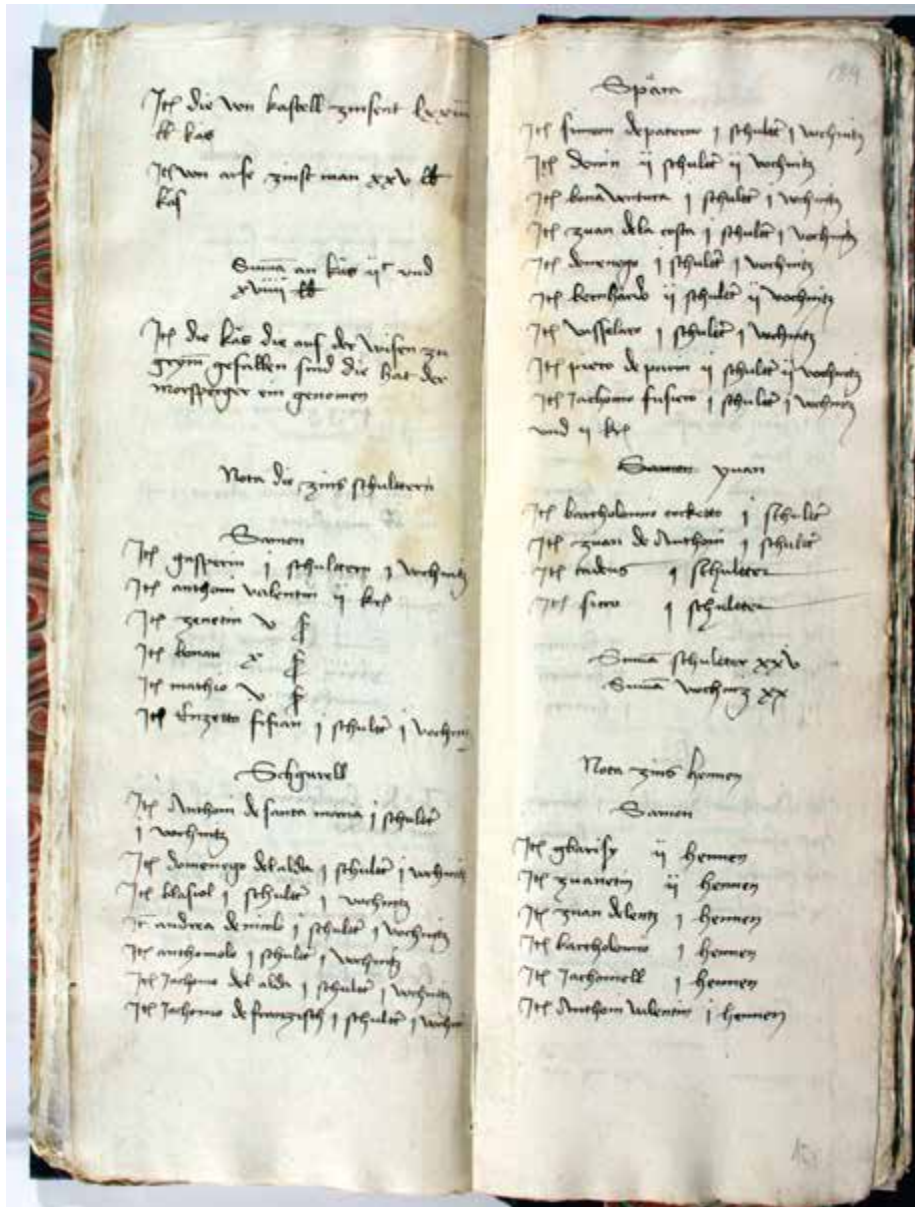 Itē die von kastell zinsent lxxiiii
lb kas
Itē von arse zinst man xxv lb
kaß
Suma an käs ijc und
xviiii lb
Itē die käs die auf der wisen zu
gefallen sind die hat der
morsperger ein genomen
Nota die zins schulttern
Samen
Itē gasperin j schulttern j vochintz
Itē anthoni valentin ij
Itē zenetin v
Itē bonan x
Itē mathio v
Itē fisian j schultr j vochintz
Schgurell
Itē Anthoni de santa maria j schultr
j vochintz
Itē domenego del alda j schultr j vochintz
Itē blasiol j schultr j vochintz
It andrea de nicolo j schultr j vochintz
Itē anthoniolo j schultr j vochintz
Itē Jachomo del alda j schultr j vochintz
Itē Jachomo de franzisch j schultr j vochin
184
Spära
Itē simon depaterno j schultr j vochintz
Itē ij schultr ij vochintz
Itē bonaventura j schultr j vochintz
Itē zuan dela costa j schultr j vochintz
Itē domenego j schultr j vochintz
Itē bernhardo ij schultr ij vochintz
Itē vasselaro j schultr j vochintz
Itē piero de ij schultr ij vochintz
Itē Jachomo j schultr j vochintz
und ij
Samen yuan
Itē bartholomio j schultr
Itē zuan de Anthoni j schultr
Itē tadeus j schultter
Itē j schultter
Suma schultter xxv
Suma vochintz xx
Nota zins hennen
Samen
Itē ij hennen
Itē zuanetin ij hennen
Itē zuan delentz j hennen
Itē bartholomio j hennen
Itē Jachomell j hennen
Itē Anthoni valentin j hennen